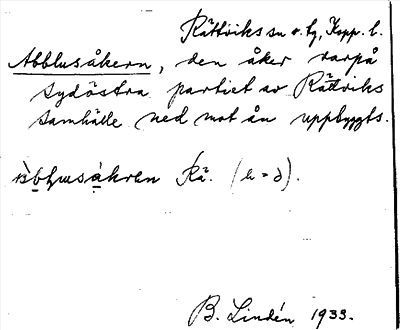 Rättviks sn o. tg, Kopp. l.
Abblusåkern, den åker varpå
sydöstra partiet av Rättviks
samhälle ned mot ån uppbyggts.
Rä. (h = d).
B. Lindén 1933.